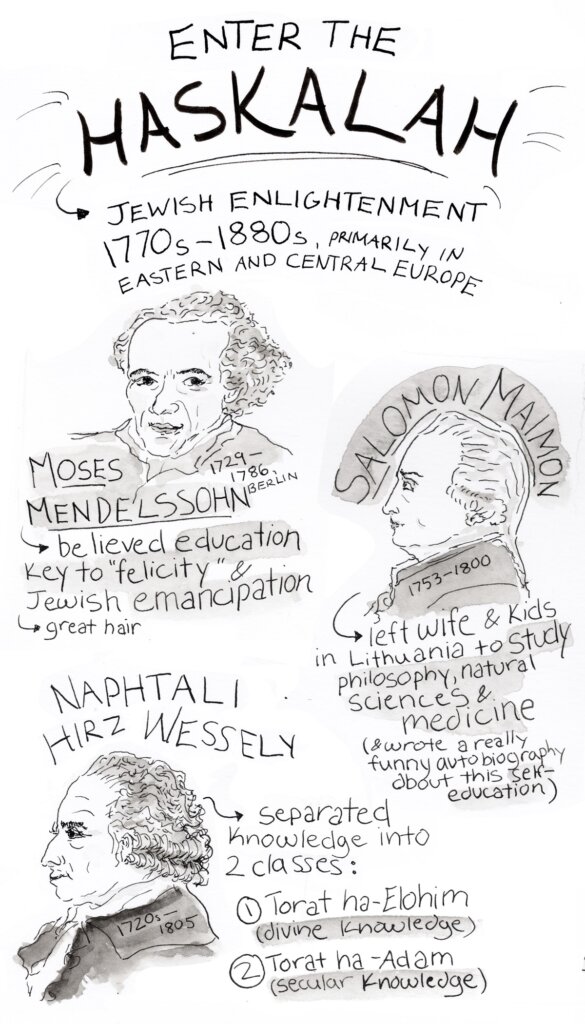 ENTER THE
HASKALAH
JEWISH ENLIGHTENMENT
1770s-1880s, PRIMARILY IN
EASTERN AND CENTRAL EUROPE
MOSES
MENDELSSOHN
1729-
1786,
BERLIN
believed education
key to "felicity" &
Jewish emancipation
great hair
SALOMON MAIMON
1753-1800
left wife & kids
in Lithuania to study
philosophy, natural
sciences &
medicine
(& wrote a really
funny autobiography
about this self-
education)
NAPHTALI
HIRZ WESSELY
1720s-
1805
separated
knowledge into
2 classes:
① Torat ha-Elohim
(divine knowledge)
② Torat ha-Adam
(secular knowledge)